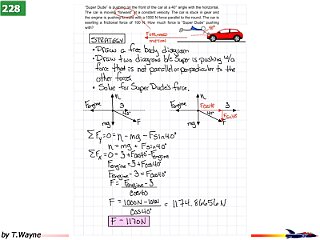 228
"Super Dude" is pushing on the front of the car at a 40° angle with the horizontal.
The car is moving "forward" at a constant velocity. The car is stuck in gear and
the engine is pushing forward with a 1000 N force parallel to the ground. The car is
exerting a frictional force of 100 N. How much force is "Super Dude" pushing
with?
STRATEGY
• Draw a free body diagram
• Draw two diagrams b/c Super is pushing w/a
force that is not parallel or perpendicular to the
other forces.
• Solve for Super Dude's force.
n n
Fengine 3 Fengine Fcos40 3
40° Fsin40
mg F mg F
ΣFy = 0 = n - mg - Fsin40°
n = mg + Fsin40°
ΣFx = 0 = 3 + Fcos40 - Fengine
Fengine = 3 + Fcos40°
Fengine - 3 = Fcos40°
F = Fengine - 3
cos40
F = 1000N - 100N = 1174.86656 N
cos40°
F = 1170N
by T.Wayne